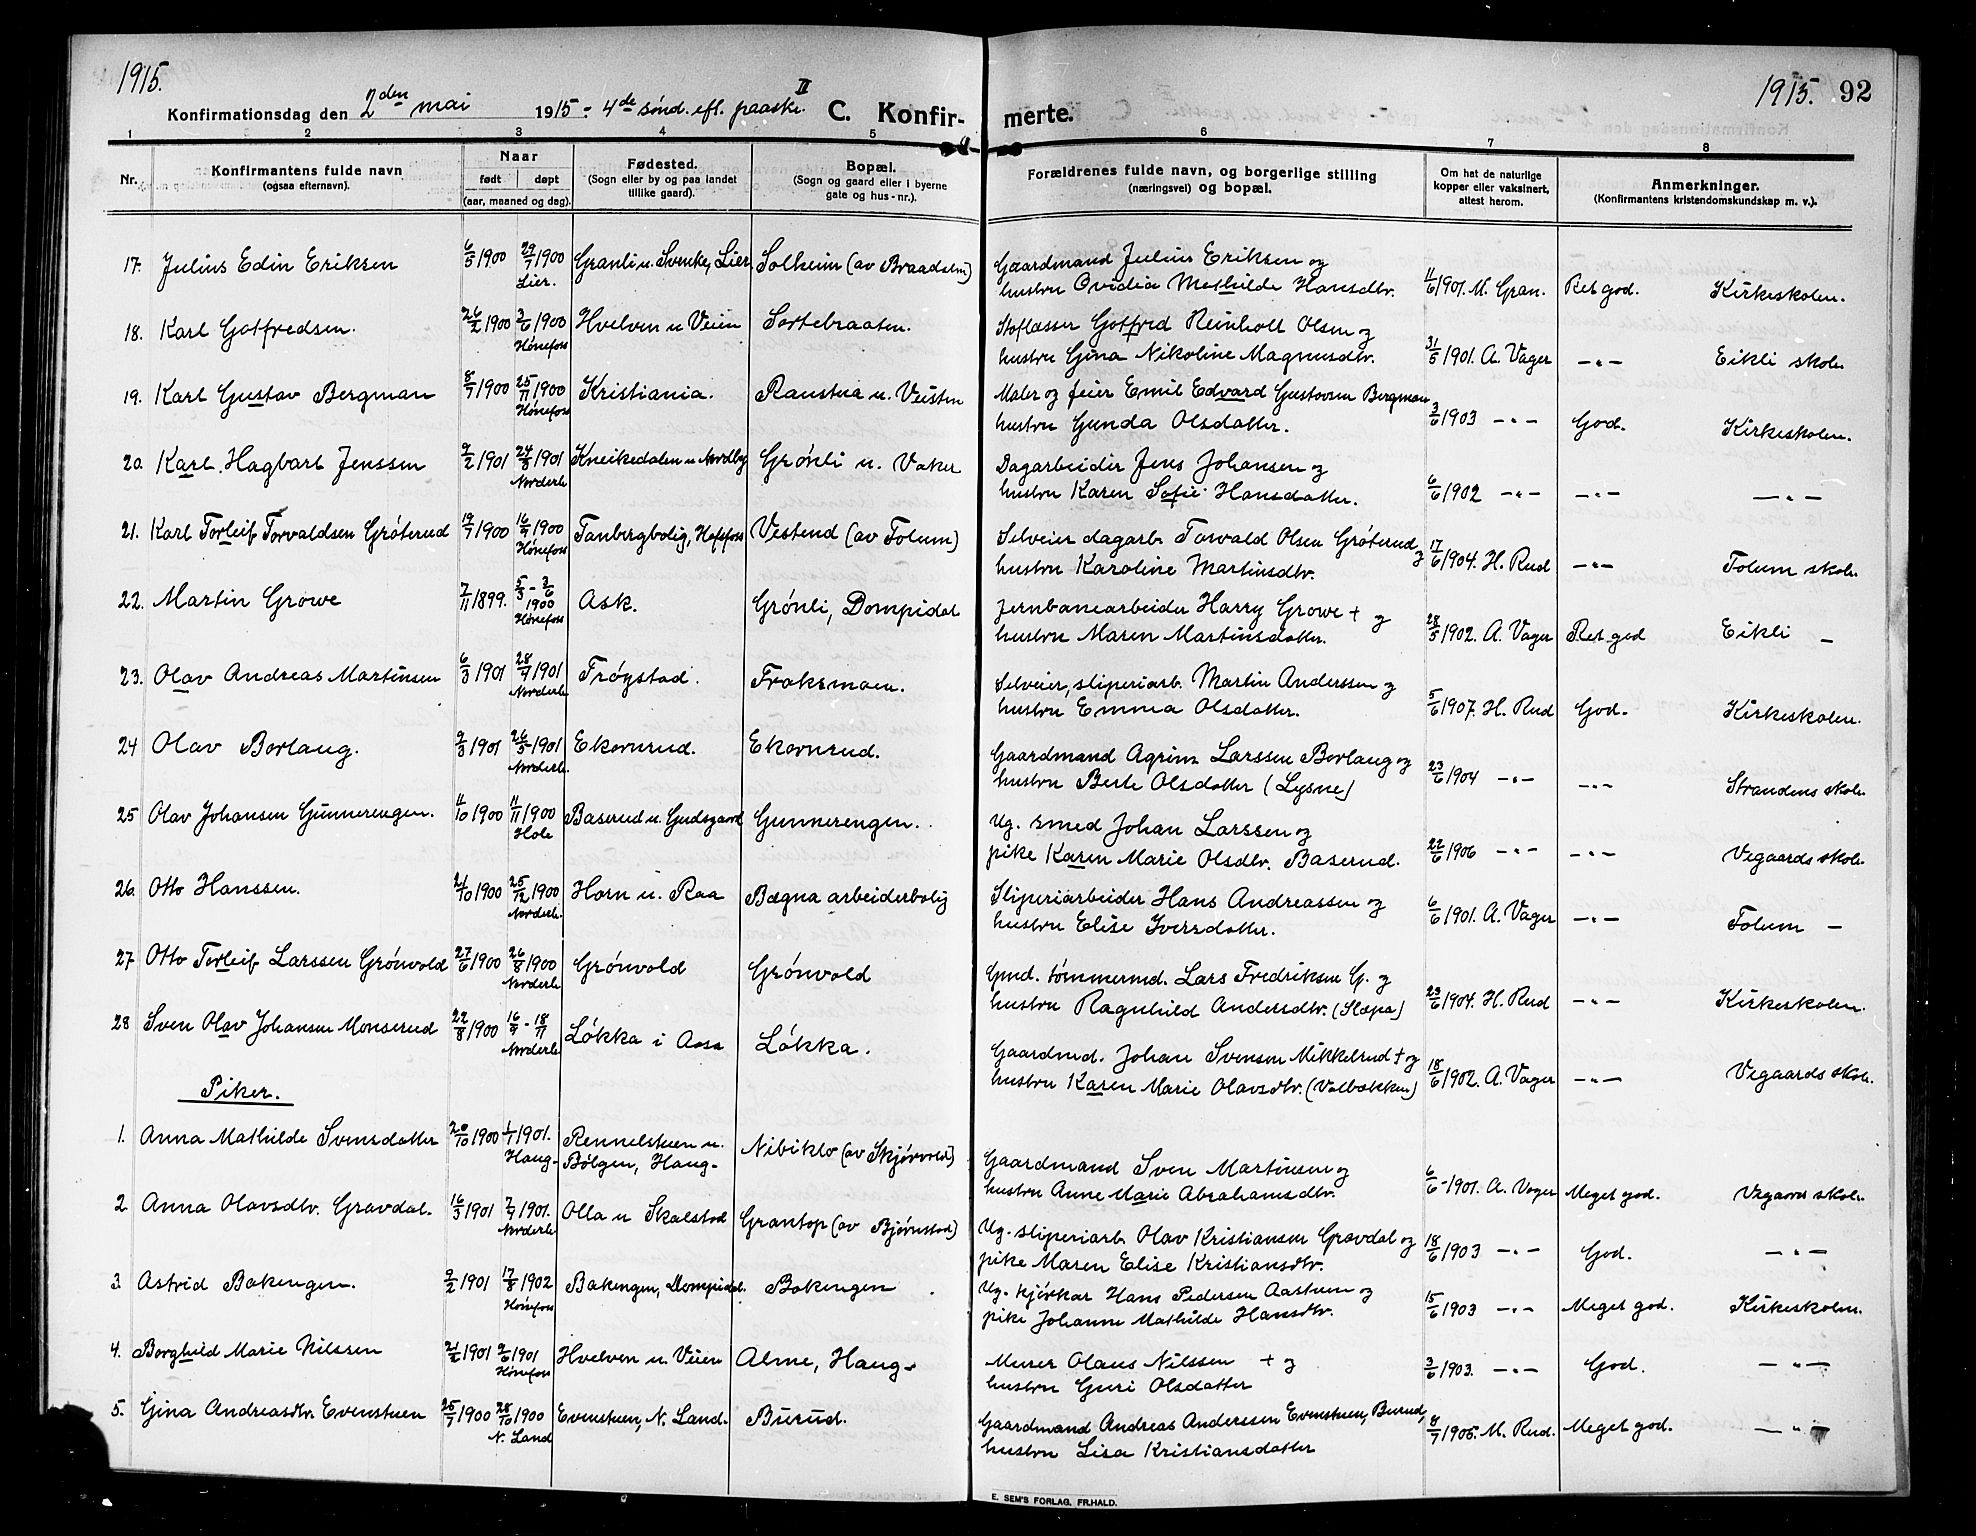 1915.
Konfirmationsdag den 2den mai 1915 - 4de sønd. eft. paaske. II C. Konfir- merte. 1915. 92
1 2 3 4 5 6 7 8
Nr. Konfirmantens fulde navn (ogsaa efternavn). Naar født døpt (aar, maaned og dag). Fødested. (Sogn eller by og paa landet tillike gaard). Bopæl. (Sogn og gaard eller i byerne gate og hus-nr.). Forældrenes fulde navn, og borgerlige stilling (næringsvei) og bopæl. Om hat de naturlige kopper eller vaksinert, attest herom. Anmerkninger. (Konfirmantens kristendomskundskap m. v.).
17. Julius Edin Eriksen 6/5 1900 29/7 1900 Lier. Granli u. Svenke, Lier Solheim (av Braadalm)
Gaardmand Julius Eriksen og
hustru Ovidia Mathilde Hansdtr. 11/6 1901. M. Gran. Ret god. Kirkeskolen.
18. Karl Gotfredsen. 26/2 1900 3/6 1900 Hønefoss Hvelven u Veien Sortebraaten.
Stoflæsser Gotfred Reinholt Olsen og
hustru Gina Nikoline Magnusdtr. 31/5 1901. A. Vager -"- Eikli skole
19. Karl Gustav Bergman 8/7 1900 25/11 1900 Hønefoss Kristiania. Raustua u. Veisten
Maler og feier Emil Edvard Gustavsen Bergman
hustru Gunda Olsdatter. 3/6 1903 -"- God. Kirkeskolen.
20. Karl Hagbart Jenssen 9/2 1901 24/8 1901 Norderh. Kneikedalen u. Nordby Grønli u. Vaker
Dagarbeider Jens Johansen og
hustru Karen Sofie Hansdatter. 6/6 1902 -"- -"- -"-
21. Karl Torleif Torvaldsen Grøterud 19/7 1900 16/9 1900 Hønefoss Tanbergbolig, Hofsfoss Vestend (av Tolum)
Selveier dagarb. Torvald Olsen Grøterud og
hustru Karoline Martinsdtr. 17/6 1904. H. Rud -"- Tolum skole
22. Martin Growe 7/11 1899. 5/3 - 3/6 1900 Hønefoss Ask. Grønli, Dompidal
Jernbanearbeider Harry Growe + og
hustru Maren Martinsdatter. 28/5 1902. A. Vager Ret god Eikli -
23. Olav Andreas Martinsen 6/3 1901 28/4 1901 Norderh. Trøgstad. Froksmoen.
Selveier, sliperiarb. Martin Anderssen og
hustru Emma Olsdatter. 5/6 1907. H. Rud God. Kirkeskolen.
24 Olav Borlaug. 9/3 1901 26/5 1901 Norderh. Ekornrud. Ekornrud.
Gaardmand Agrim Larssen Borlaug og
hustru Berte Olsdatter (Lysne) 23/6 1904 -"- -"- Strandens skole
25 Olav Johansen Gunnerengen. 11/10 1900 11/11 1900 Hole Baserud u. Gudsgaard Gunnerengen.
Ug. smed Johan Larssen og
pike Karen Marie Olsdtr. Baserud. 22/6 1906 -"- -"- Vegaards skole
26. Otto Hanssen. 21/10 1900 25/12 1900 Norderh. Horn u. Raa Bægna arbeiderbolig
Sliperiarbeider Hans Andreassen og
hustru Elise Iversdatter. 6/6 1901. A. Vager -"- Tolum -
27 Otto Torleif Larssen Grønvold 27/6 1900 26/8 1900 Norderh. Grønvold Grønvold
Gmd. tømmermd. Lars Fredriksen G. og
hustru Ragnhild Andersdtr. (Slæpa) 23/6 1904. H. Rud -"- Kirkeskolen.
28 Sven Olav Johansen Monserud 22/8 1900 16/9 - 18/11 Norderh. Løkka i Aasa Løkka.
Gaardmd. Johan Svensen Mikkelrud + og
hustru Karen Marie Olavsdtr. (Volbækken) 18/6 1902. A. Vager -"- Vegaards skole.
Piker.
1. Anna Mathilde Svensdatter 20/10 1900 1/1 1901. Haug- Rennelstuen u. Bølgen, Haug- Nibiklo (av Skjørvold)
Gaardmand Sven Martinsen og
hustru Anne Marie Abrahamsdtr. 6/6 1901. A. Vager Meget god. Vegaards skole
2 Anna Olavsdtr. Gravdal. 16/3 1901 7/9 1901. Norderh. Olla u Skalstad Grantop (av Bjørnstad)
Ug. sliperiarb. Olav Kristiansen Gravdal og
pike Maren Elise Kristiansdtr. 18/6 1903 -"- God. -"-
3. Astrid Bakengen. 9/2 1901 17/8 1902 Hønefoss Bakengen, Dompidal. Bakengen
Ug. kjørkar Hans Pedersen Aastuen og
pike Johanne Mathilde Hansdtr. 15/6 1903 -"- Meget god. Kirkeskolen.
4. Borghild Marie Nilssen 21/2 1901 9/6 1901 Hønefoss Hvelven u. Veien Alme, Haug-
Murer Olaus Nilssen + og
hustru Guri Olsdatter 3/6 1903. -"- God. -"-
5. Gina Andreasdtr. Evenstuen 25/7 1900 28/10 1900 N. Land Evenstuen, N. Land. Burud.
Gaardmand Andreas Anderssen Evenstuen, Burud,
hustru Lisa Kristiansdatter 8/7 1905. M. Rud. Meget god. -"-
E. SEM'S FORLAG, FR.HALD.